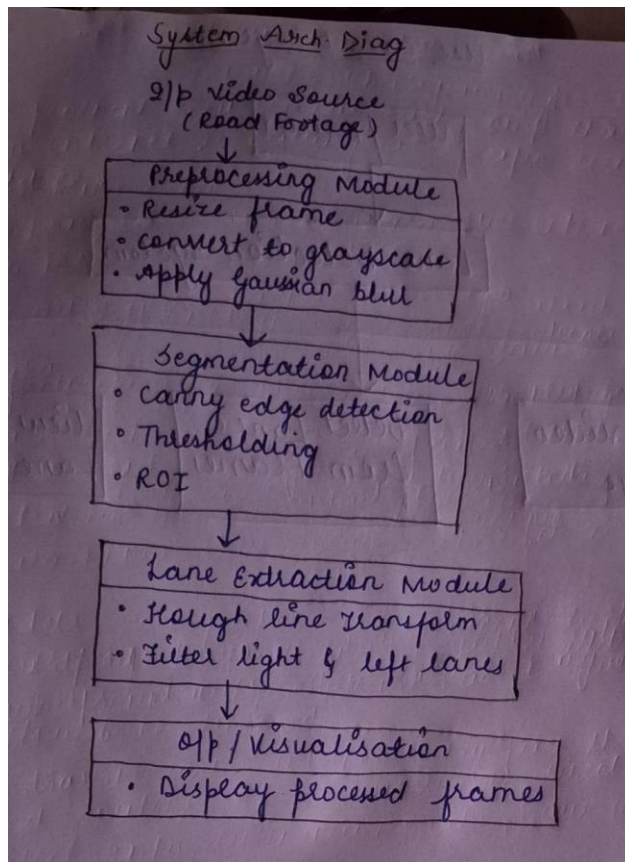 System Arch. Diag
I/p Video Source
(Road Footage)
Preprocessing Module
• Resize frame
• Convert to grayscale
• Apply Gaussian blur
Segmentation Module
• Canny edge detection
• Thresholding
• ROI
Lane Extraction Module
• Hough line transform
• Filter right & left lanes
O/p / Visualisation
• Display processed frames